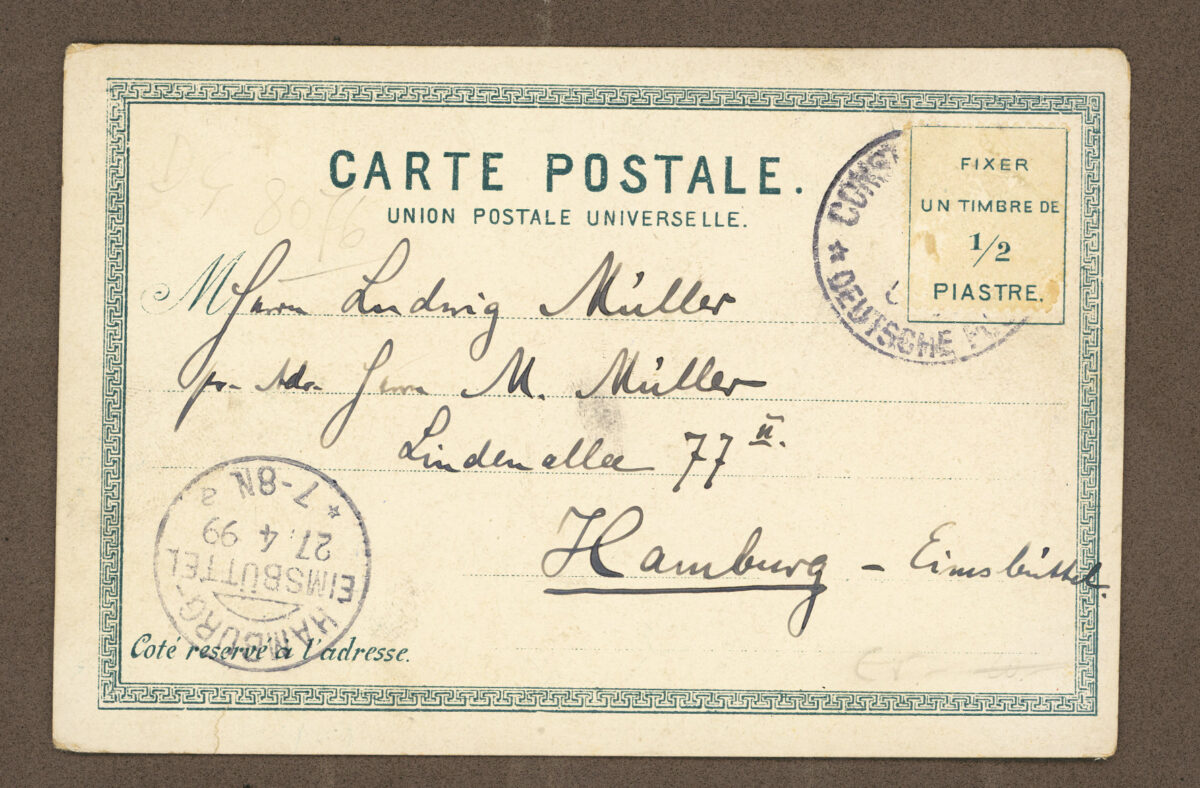 CARTE POSTALE.
UNION POSTALE UNIVERSELLE.
FIXER
UN TIMBRE DE
1/2
PIASTRE.
CONS
* DEUTSCHE
8076
M Herrn Ludwig Müller
pr. Adr. Herrn M. Müller
Lindenallee 77 II.
Hamburg - Eimsbüttel.
HAMBURG-
EIMSBÜTTEL
27.4.99
* 7-8N a
Coté reservé a l'adresse.